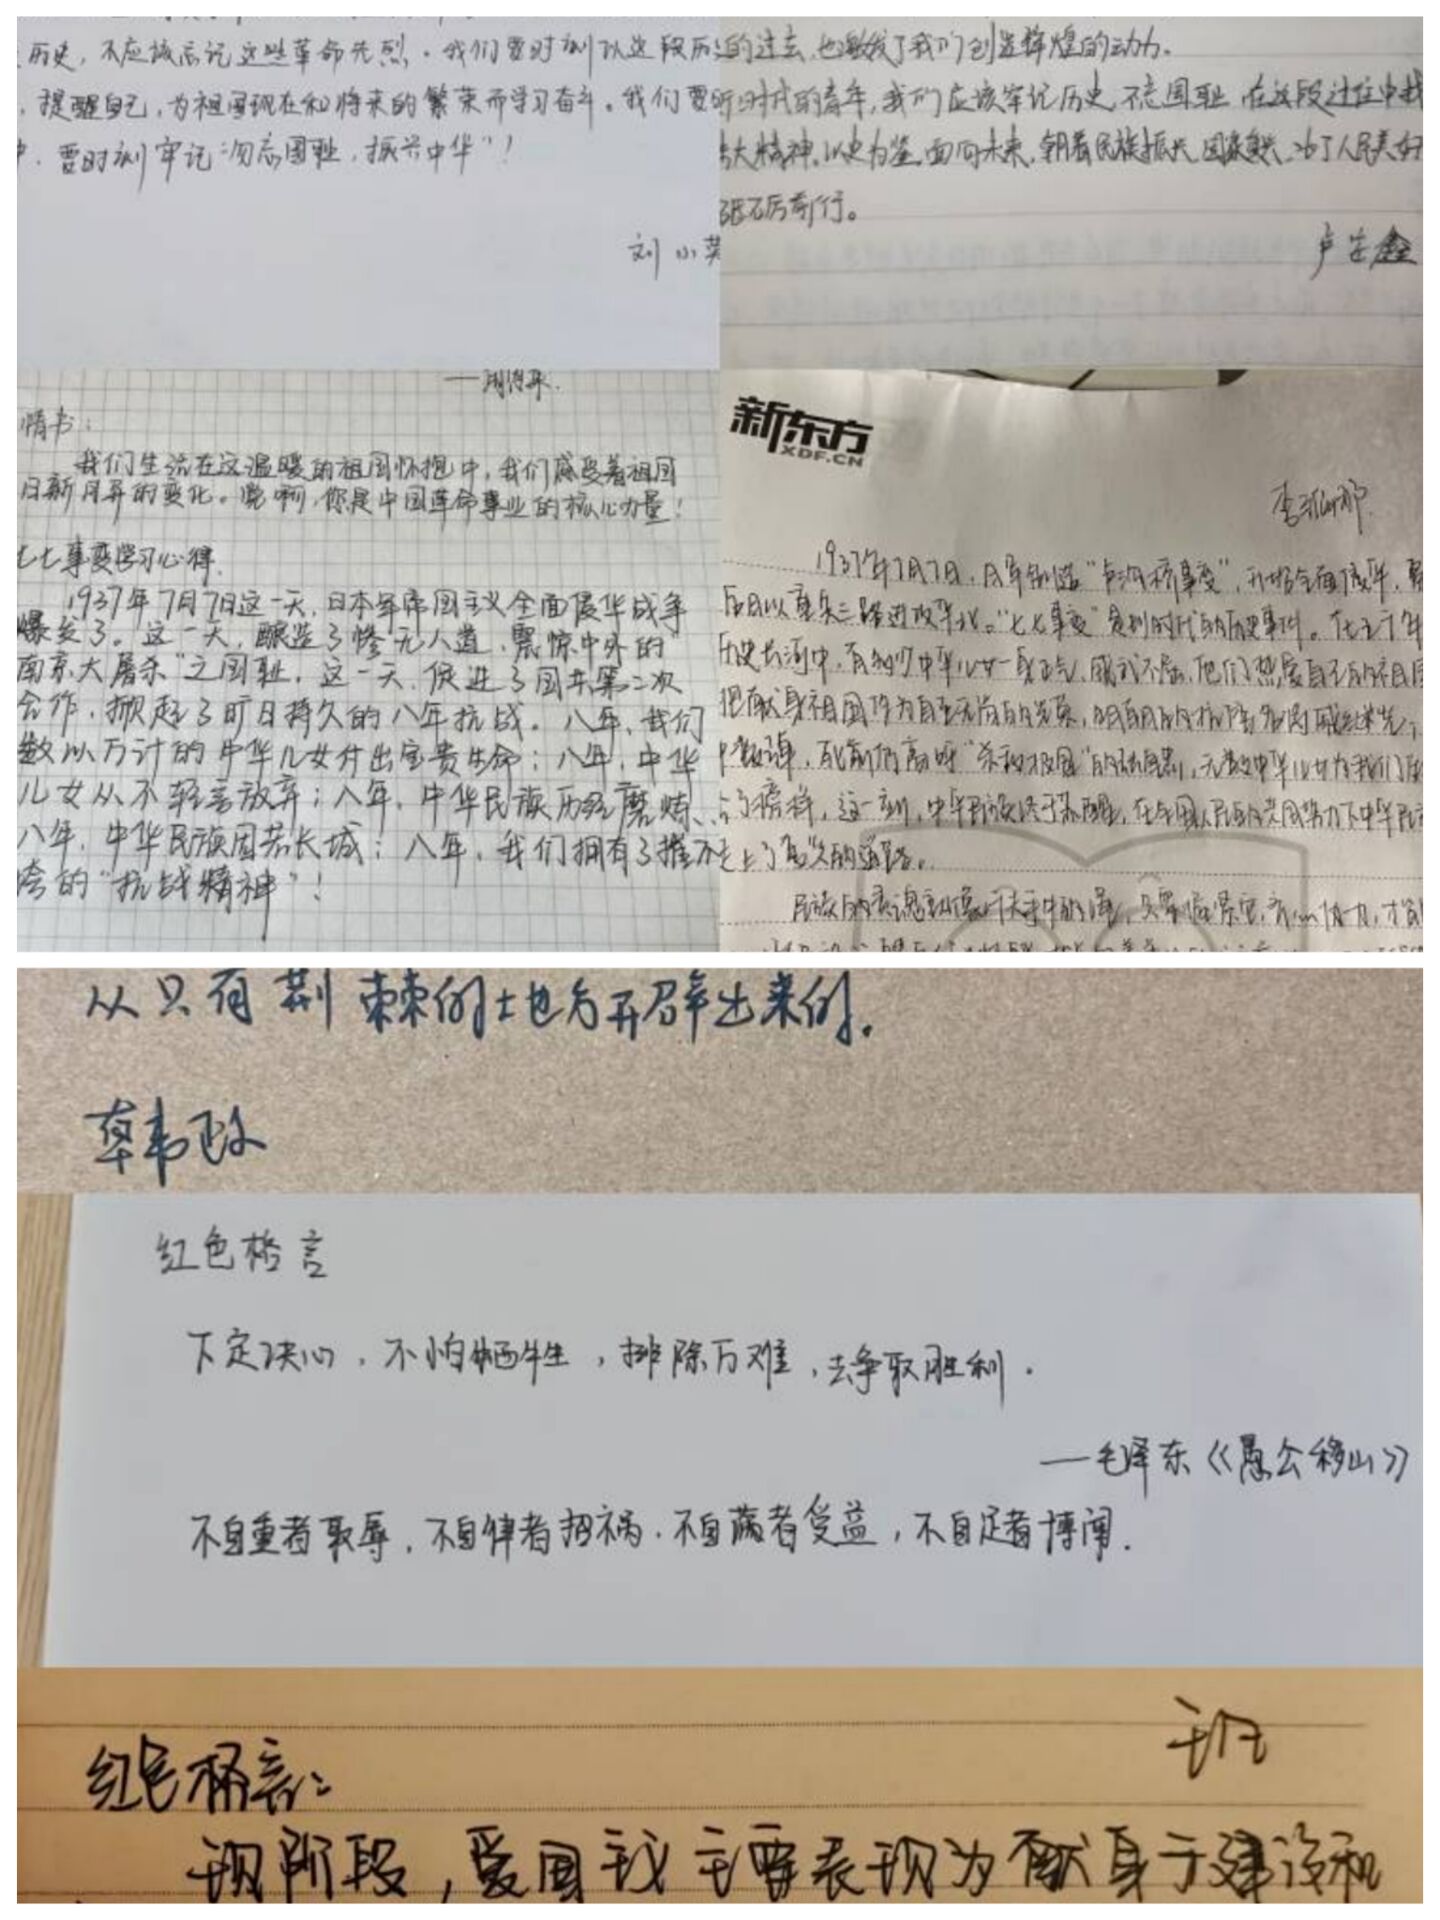 历史，不应该忘记这些革命先烈。我们要时刻以这段历
，提醒自己，为祖国现在和将来的繁荣而学习奋斗。我们要
，要时刻牢记“勿忘国耻，振兴中华”！
刘小英
的过去，也激发了我们创造辉煌的动力。
时代的青年，我们应该牢记历史，不忘国耻，在这段过往中找
大精神，以史为鉴，面向未来，朝着民族振兴、国家 人民美好
砥砺前行。
情书：
我们生活在这温暖的祖国怀抱中，我们感受着祖国
日新月异的变化。党啊，你是中国革命事业的核心力量！
七七事变学习心得
1937年7月7日这一天，日本军帝国主义全面侵华战争
爆发了。这一天，酿造了惨无人道，震惊中外的“
南京大屠杀”之国耻。这一天，促进了国共第二次
合作，掀起了旷日持久的八年抗战。八年，我们
数以万计的中华儿女付出宝贵生命；八年，中华
儿女从不轻言放弃；八年，中华民族历经磨炼、
八年，中华民族固若长城；八年，我们拥有了摧不
垮的“抗战精神”！
新东方
XDF.CN
1937年7月7日，日军制造“卢沟桥事变”，开始全面侵华，
后日以 三路进攻华北。“七七事变”是划时代的历史事件。在五千年
历史长河中，有多少中华儿女一身正气，威武不屈，他们热爱自己的祖国
把献身祖国作为自己无尚的光荣，
中 弹，死前仍高呼“ ”的 ，无数中华儿女为我们
了榜样，这一刻，中华民族终于苏醒，在全国人民的共同努力下中华民
上了 的道路。
从只有荆棘的土地方开辟出来的。
红色格言
下定决心，不怕牺牲，排除万难，去争取胜利．
——毛泽东《愚公移山》
不自重者取辱，不自律者招祸．不自满者受益，不自足者博闻．
红色格言：
现阶段，爱国主义主要表现为献身于建设和